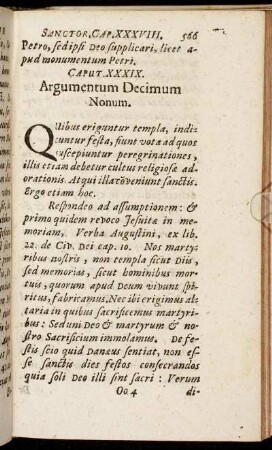 SANCTOR. CAP. XXXVIII. 566
Petro, sed ipsi Deo supplicari, licet a-
pud monumentum Petri.
CAPUT XXXIX.
Argumentum Decimum
Nonum.
QUibus eriguntur templa, indi-
cuntur festa, fiunt vota ad quos
suscipiuntur peregrinationes,
illis etiam debetur cultus religiosæ ad-
orationis. Atqui illa conveniunt sanctis.
Ergo etiam hoc.
Respondeo ad assumptionem: &
primo quidem revoco Jesuitæ in me-
moriam, Verba Augustini, ex lib.
22. de Civ. Dei cap. 10. Nos marty-
ribus nostris, non templa sicut Diis,
sed memorias, sicut hominibus mor-
tuis, quorum apud Deum vivunt spi-
ritus, fabricamus. Nec ibi erigimus Al-
taria in quibus sacrificemus martyri-
bus: Sed uni Deo & martyrum & no-
stro Sacrificium immolamus. De fe-
stis scio quid Danæus sentiat, non es-
se sanctis dies festos consecrandos
quia soli Deo illi sint sacri: Verum
Oo 4 di-